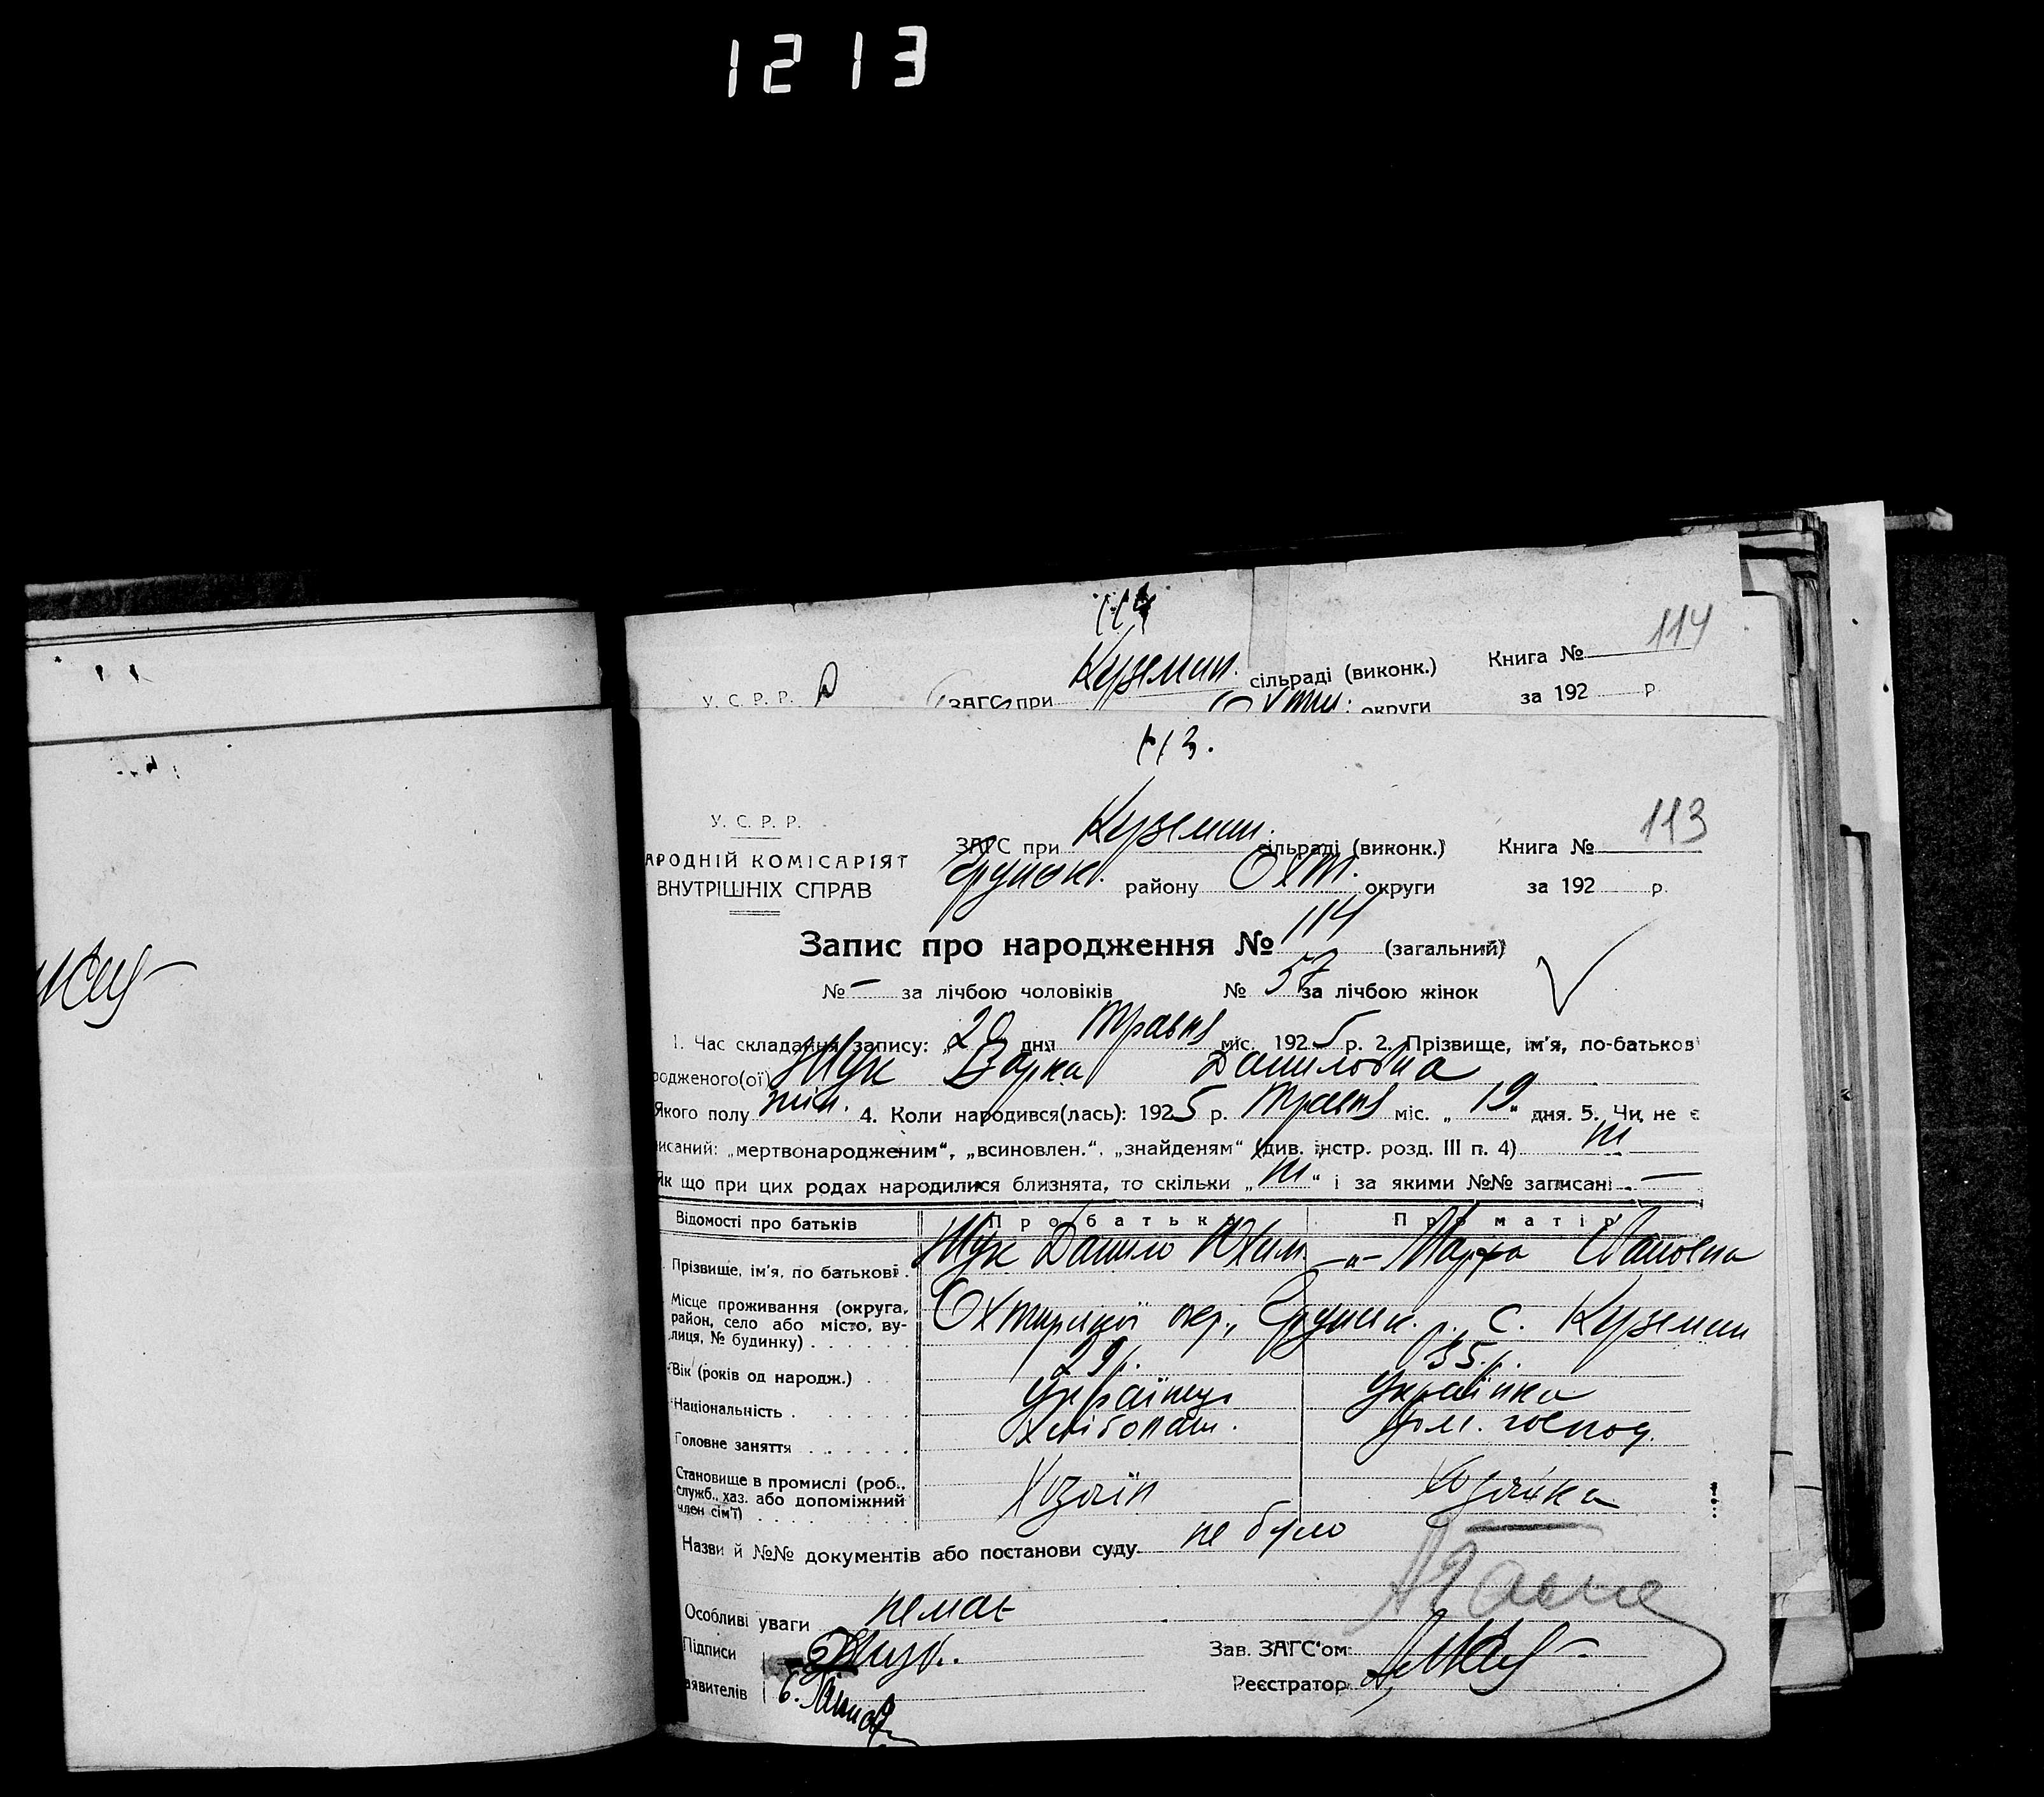 1213
114
Куземин. сільраді (виконк.) Книга № 114
У. С. Р. Р. ЗАГС при
Охтир. округи за 192 р.
113.
У. С. Р. Р.
ЗАГС при Куземин. сільраді (виконк.) Книга № 113
АРОДНІЙ КОМІСАРІЯТ
ВНУТРІШНІХ СПРАВ
Грунськ. району Охт. округи за 192 р.
Запис про народження № 114 (загальний)
№ – за лічбою чоловіків № 57 за лічбою жінок
1. Час складання запису: „20 дня травня міс. 1925 р. 2. Прізвище, ім'я, по-батькові
родженого(ої) Жук Варка Даниловна
Якого полу жін. 4. Коли народився(лась): 1925 р. травня міс. „19" дня. 5. Чи не є
исаний: „мертвонародженим", „всиновлен.", „знайденям" (див. інстр. розд. III п. 4) ні
Як що при цих родах народилися близнята, то скільки „ні" і за якими №№ записані –
Відомості про батьків Про батька Про матір
Прізвище, ім'я, по батькові . Жук Данило Юхим. -„- Марфа Івановна
Місце проживання (округа,
район, село або місто, ву-
лиця, № будинку) . . . . . .
Охтирської окр., Грунськ. р. с. Куземин
Вік (років од народж.) . . 29 р. 35 р.
Національність . . . . . . Українець Українка
Головне заняття . . . . . . Хлібопаш. дом. господ.
Становище в промислі (роб.,
служб., хаз. або допоміжний
член сім'ї) . . . . . . . . .
Хозяїн Хозяйка
Назви й №№ документів або постанови суду. не було
Особливі уваги немає
Підписи
аявителів
Зав. ЗАГС'ом:
Реєстратор: